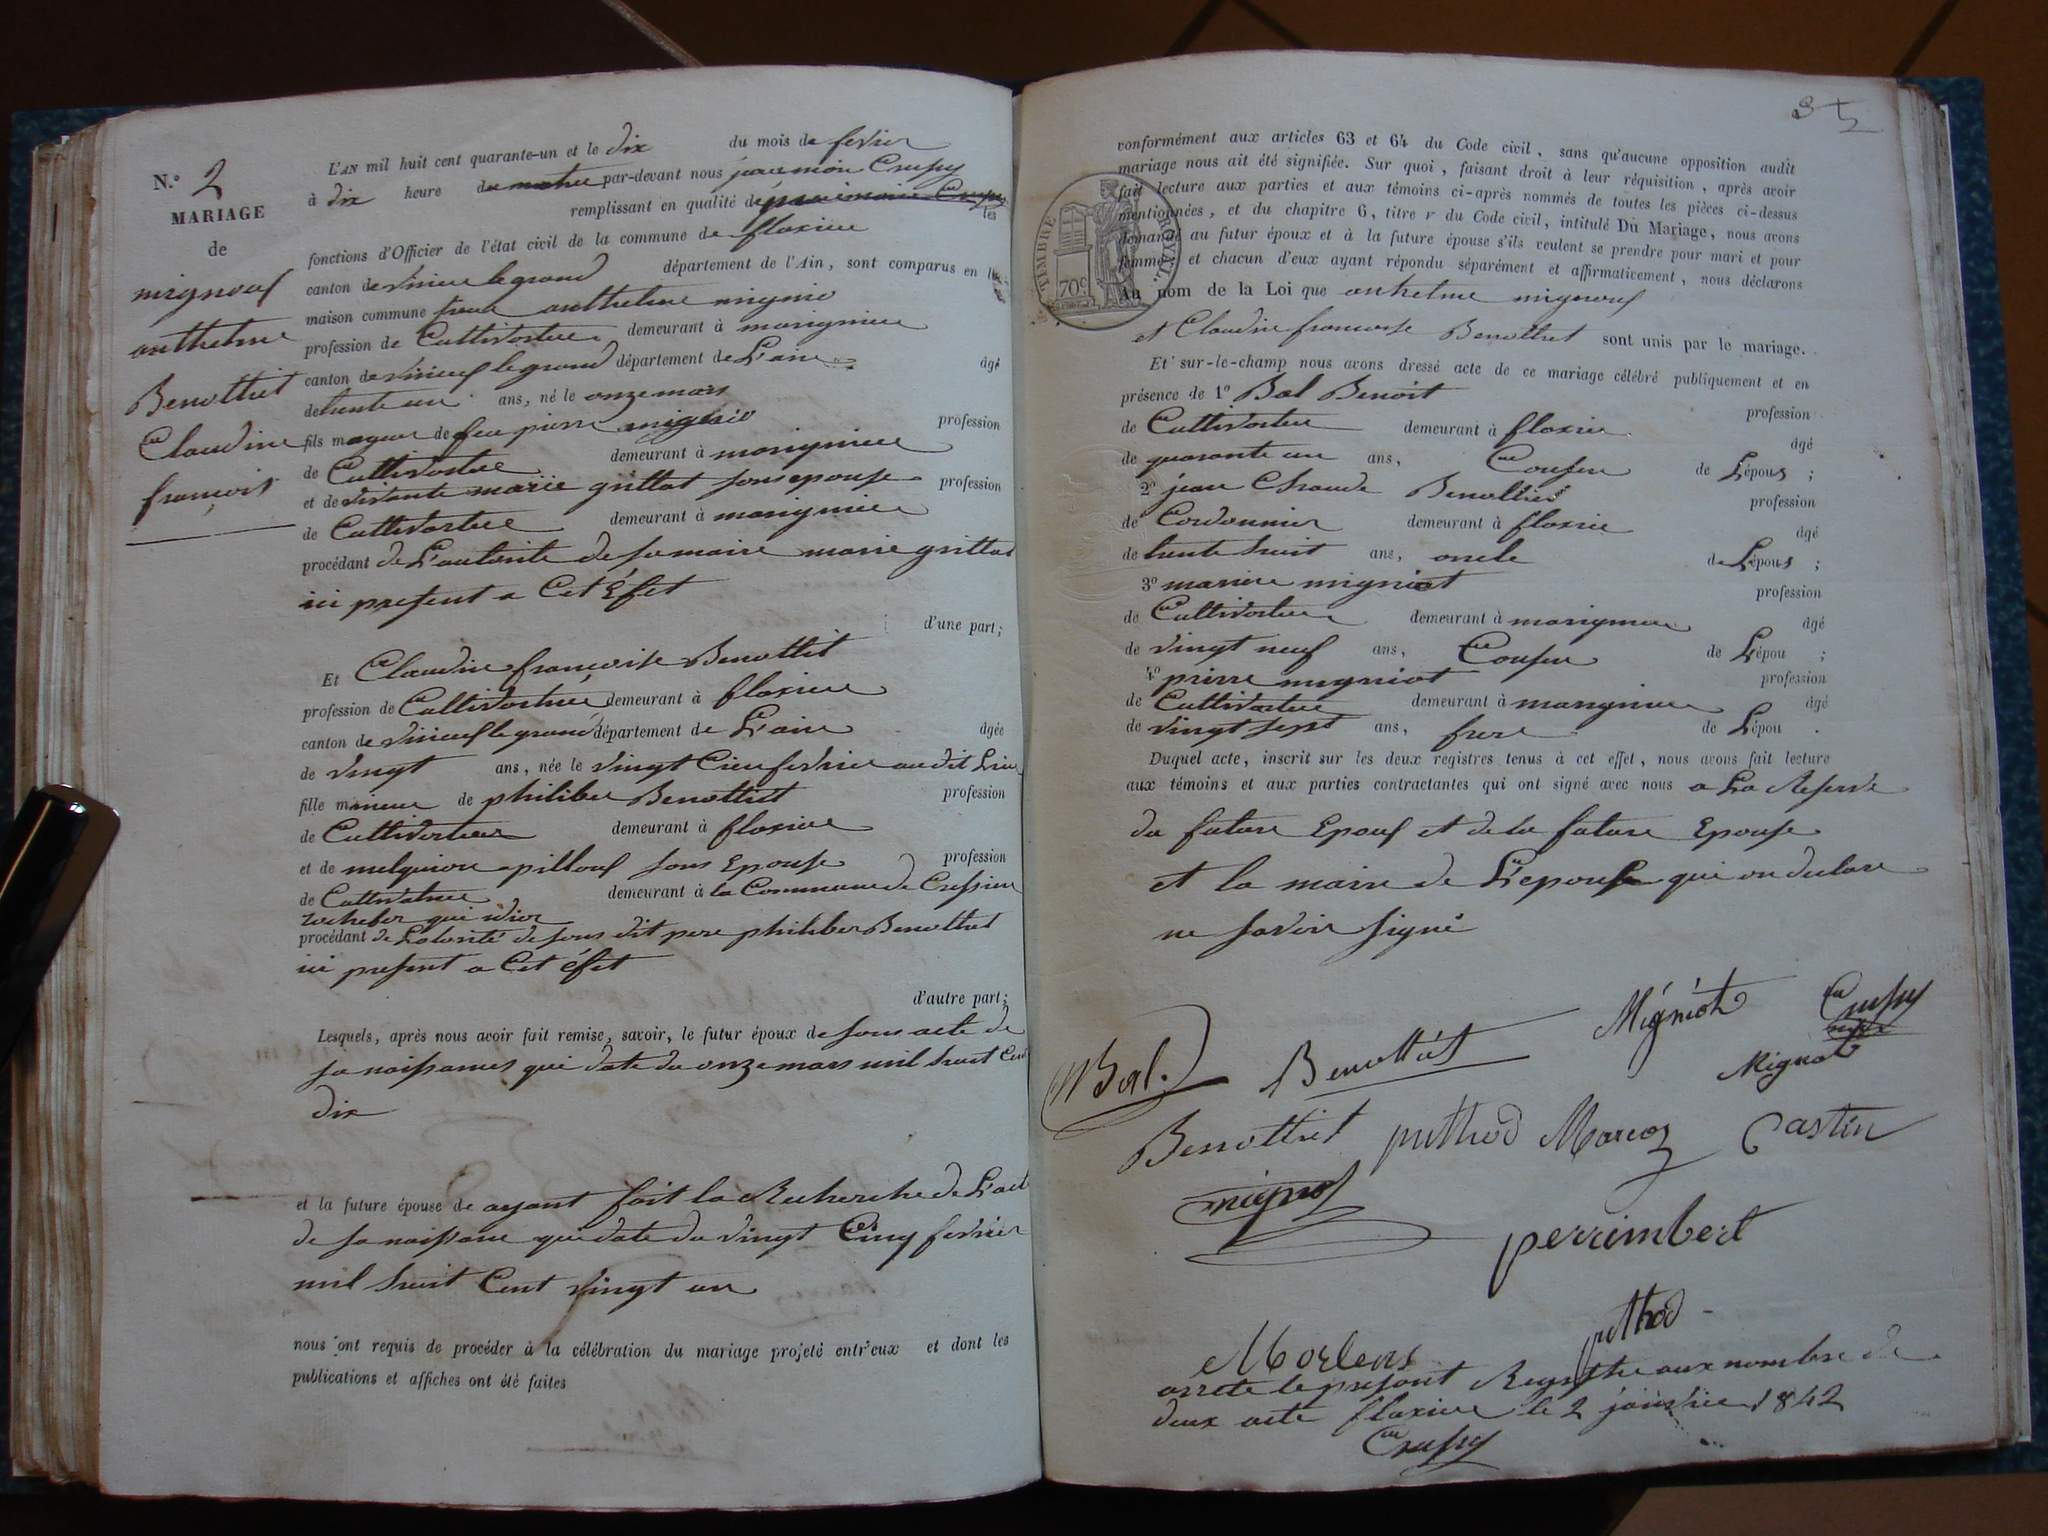 N.º 2
MARIAGE
de
mignouf
anthelme
Benottiet
Claudine
françoise
L'AN mil huit cent quarante-un et le dix du mois de fevrier
à dix heure du matin par-devant nous
remplissant en qualité de les
fonctions d'Officier de l'état civil de la commune de flaxieu
canton de virieu le grand département de l'Ain, sont comparus en la
maison commune anthelme mignio
profession de Cultivateur demeurant à marignieu
canton de virieu le grand département de L'ain âgé
de trente un ans, né le onze mars
fils mageur de feu pierre mignio profession
de Cultivateur demeurant à marignieu
et de vivante marie grillat sons epouse profession
de Cultivatrice demeurant à marignieu
procédant de L'autorite de sa maire marie grillat
ici present a Cet Éfet
d'une part;
Et Claudine françoise Benottiet
profession de Cultivatrice demeurant à flaxieu
canton de virieu le grand département de L'ain âgée
de vingt ans, née le vingt Cien fevrier au dit Lieu
fille mineur de philiber Benottiet profession
de Cultivateur demeurant à flaxieu
et de melquiore pillouf sons Epouse profession
de Cultivatrice demeurant à la Commune de Cressieu
rochefor qui
procédant de Lotorité de sons dit pere philiber Benottiet
ici present a Cet éfet
d'autre part;
Lesquels, après nous avoir fait remise, savoir, le futur époux de sons acte de
sa naissances qui date du onze mars mil huit Cent
dix
et la future épouse de ayant fait la Recherche de L'acte
de sa naissance qui date du vingt Cinq fevrier
mil huit Cent vingt un
nous ont requis de procéder à la célébration du mariage projeté entr'eux et dont les
publications et affiches ont été faites
conformément aux articles 63 et 64 du Code civil, sans qu'aucune opposition audit
mariage nous ait été signifiée. Sur quoi, faisant droit à leur réquisition, après avoir
fait lecture aux parties et aux témoins ci-après nommés de toutes les pièces ci-dessus
mentionnées, et du chapitre 6, titre v du Code civil, intitulé Du Mariage, nous avons
demandé au futur époux et à la future épouse s'ils veulent se prendre pour mari et pour
femme, et chacun d'eux ayant répondu séparément et affirmativement, nous déclarons
Au nom de la Loi que anthelme mignouf
TIMBRE ROYAL.
70c
et Claudine francoise Benottiet sont unis par le mariage.
Et sur-le-champ nous avons dressé acte de ce mariage célébré publiquement et en
présence de 1º Bal Benoit profession
de Cultivateur demeurant à flaxieu âgé
de quarante un ans, Cousin de Lépous ;
2º jean Claude Benottiet profession
de Cordonnier demeurant à flaxieu âgé
de trente huit ans, oncle de Lépous ;
3º migniot profession
de Cultivateur demeurant à marignieu âgé
de vingt neuf ans, Cousin de Lépou ;
4º pierre migniot profession
de Cultivateur demeurant à marignieu âgé
de vingt sept ans, frere de Lépou .
Duquel acte, inscrit sur les deux registres tenus à cet effet, nous avons fait lecture
aux témoins et aux parties contractantes qui ont signé avec nous a La Reserve
du future Epouf et de la future Epouse
et la maire de L'epouse qui on declare
ne savoir signé
Bal. Benottiet Migniot Crussy
Mignot
Benottiet puthod Marcoz Castin
mignot
perrimbert
puthod
Morlens
arrete le present Registre aux nombre de
deux acte flaxieu le 2 janvier 1842
Crussy